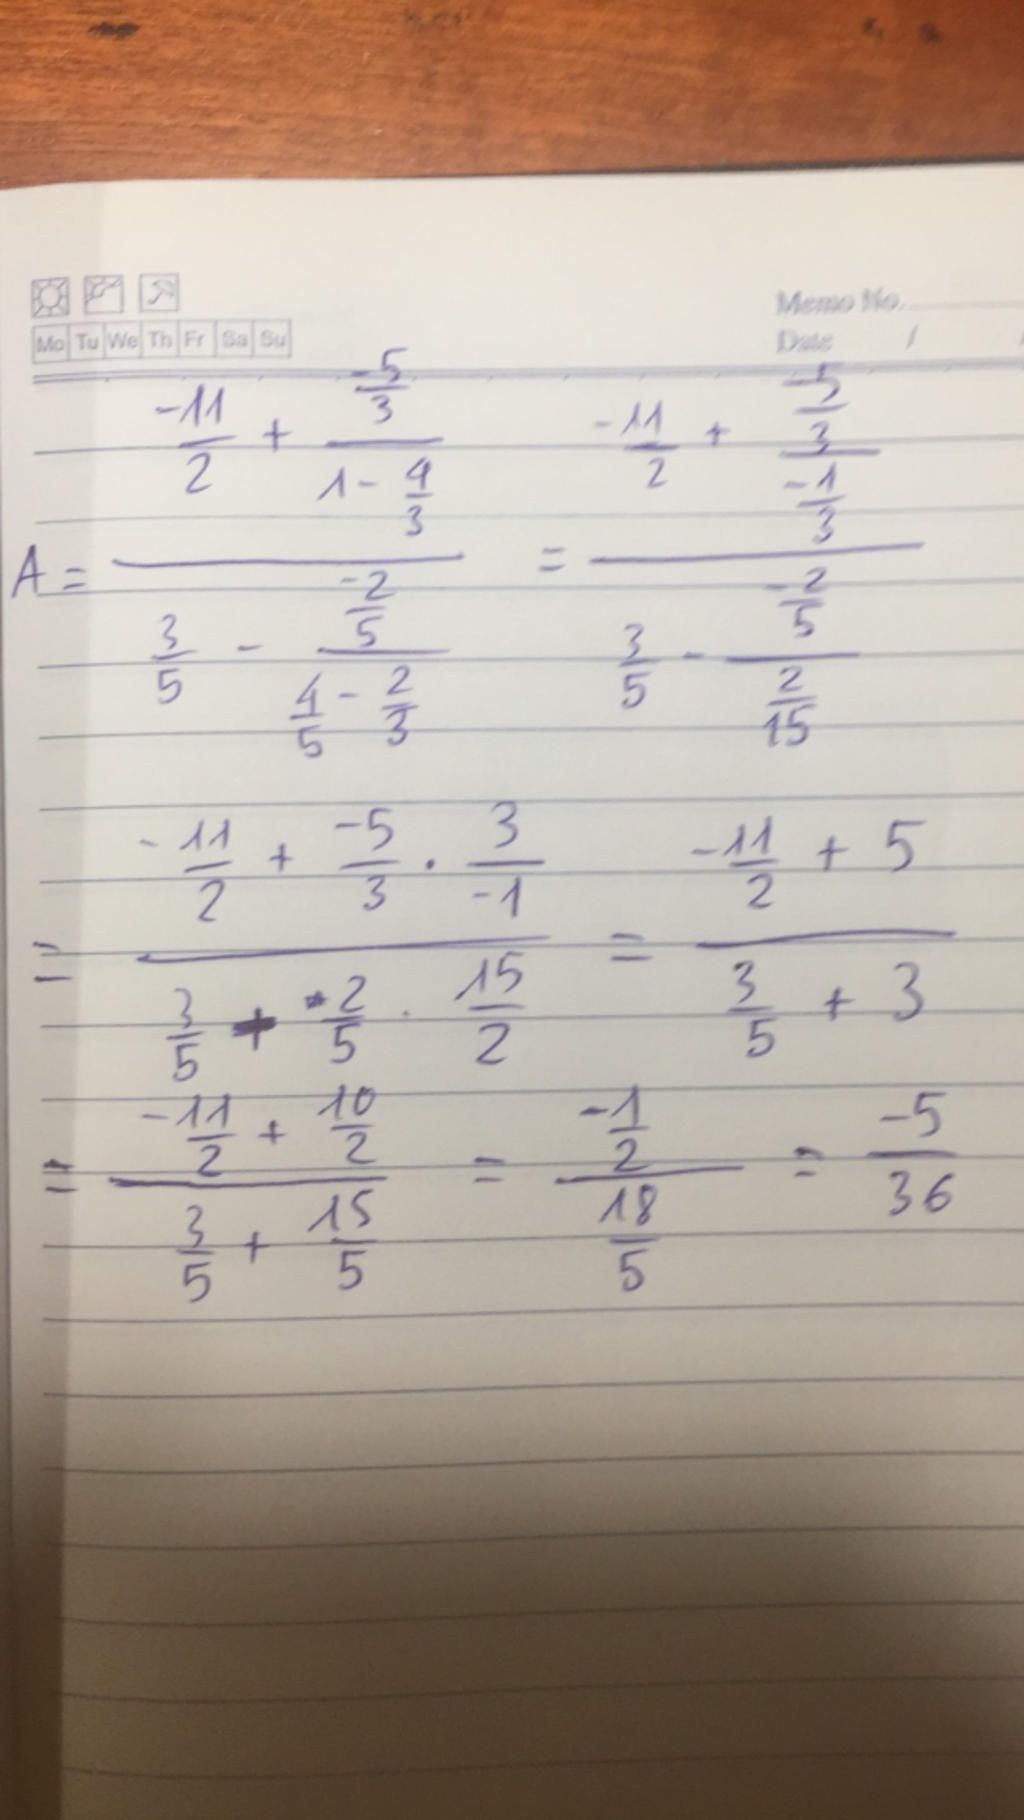 Memo No.
Mo Tu We Th Fr Sa Su
Date / /
A = (-11/2 + (-5/3)/(1 - 4/3))/(3/5 - (-2/5)/(4/5 - 2/3)) = (-11/2 + (-5/3)/(-1/3))/(3/5 - (-2/5)/(2/15))
= (-11/2 + -5/3 . 3/-1)/(3/5 + 2/5 . 15/2) = (-11/2 + 5)/(3/5 + 3)
= (-11/2 + 10/2)/(3/5 + 15/5) = (-1/2)/(18/5) = -5/36